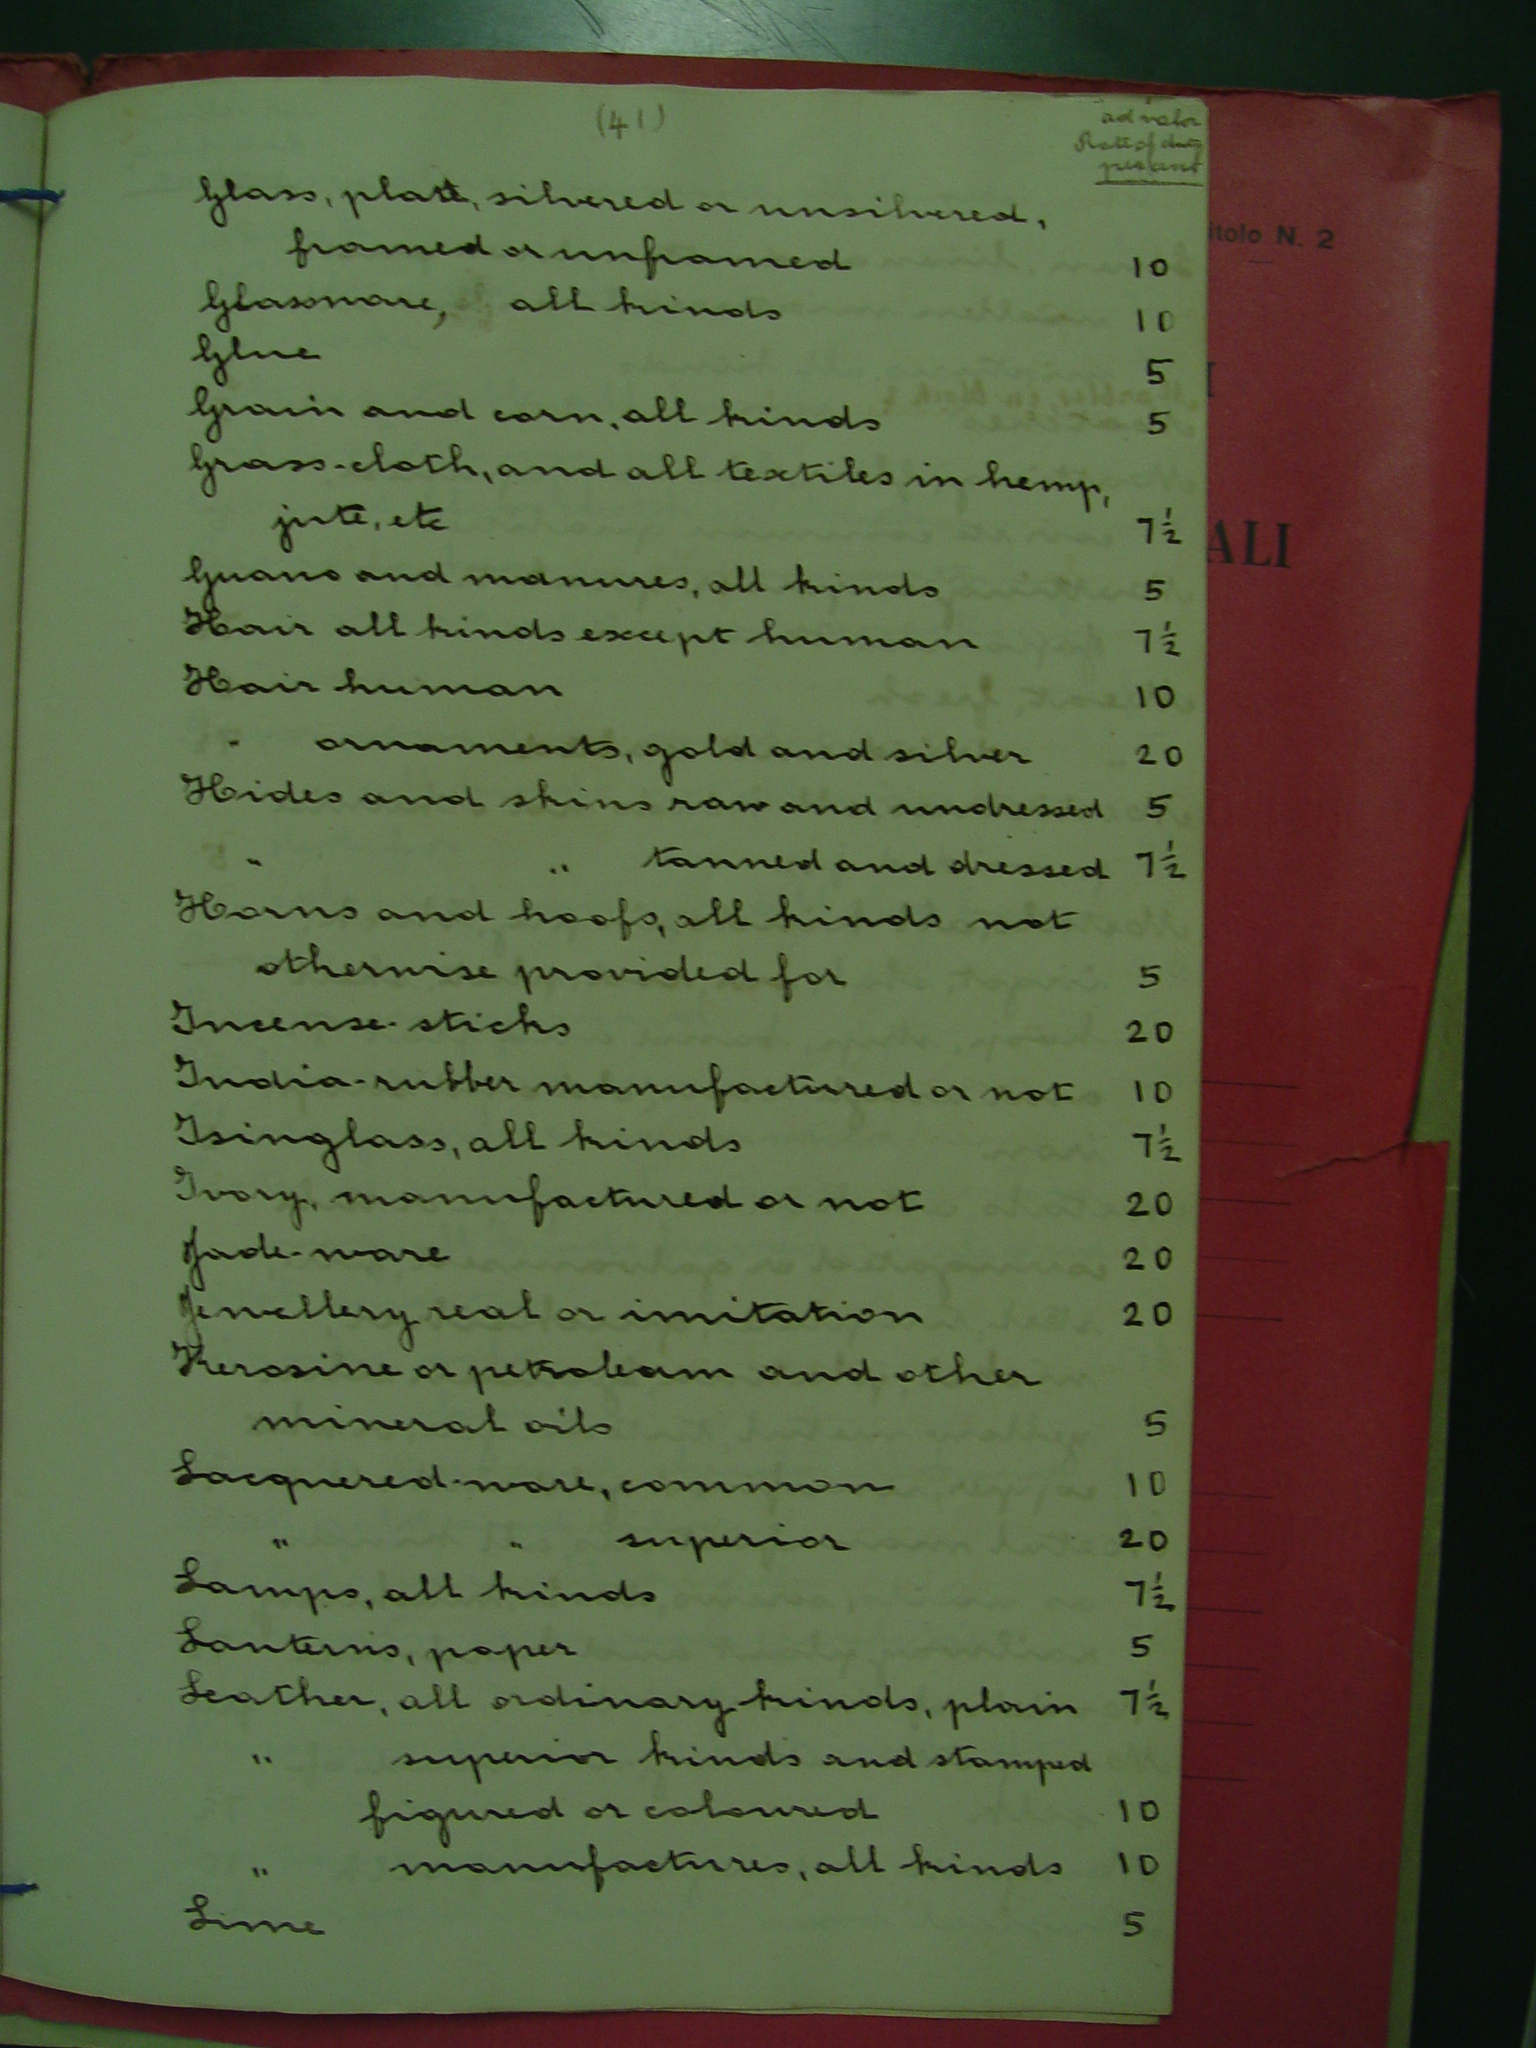 (41)
ad valor
Rate of duty
per cent
Glass, plate, silvered or unsilvered,
framed or unframed 10
Glassware, all kinds 10
Glue 5
Grain and corn, all kinds 5
Grass-cloth, and all textiles in hemp,
jute, etc 7½
Guano and manures, all kinds 5
Hair all kinds except human 7½
Hair human 10
" ornaments, gold and silver 20
Hides and skins raw and undressed 5
" " tanned and dressed 7½
Horns and hoofs, all kinds not
otherwise provided for 5
Incense-sticks 20
India-rubber manufactured or not 10
Isinglass, all kinds 7½
Ivory, manufactured or not 20
Jade-ware 20
Jewellery real or imitation 20
Kerosine or petroleum and other
mineral oils 5
Lacquered-ware, common 10
" " superior 20
Lamps, all kinds 7½
Lanterns, paper 5
Leather, all ordinary kinds, plain 7½
" superior kinds and stamped
figured or coloured 10
" manufactures, all kinds 10
Lime 5
itolo N. 2
I
ALI